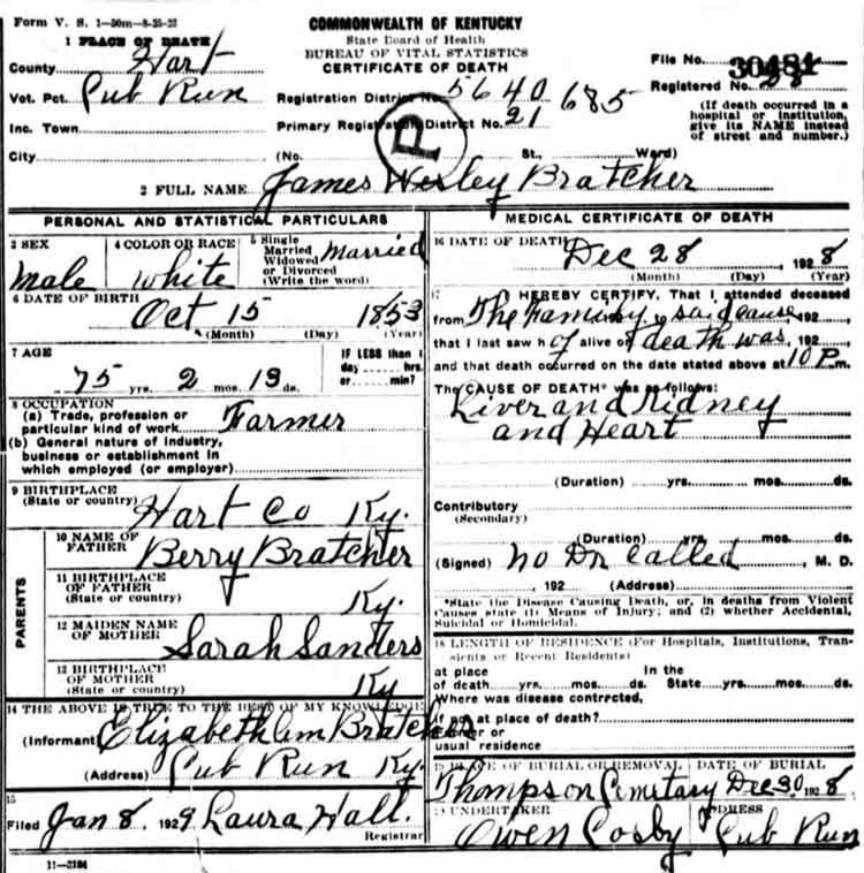 Form V. S. 1—50m—8-25-22
COMMONWEALTH OF KENTUCKY
State Board of Health
BUREAU OF VITAL STATISTICS
CERTIFICATE OF DEATH
1 PLACE OF DEATH
County Hart
Vot. Pct. Cub Run
Inc. Town
City
File No. 30481
Registered No.
(If death occurred in a hospital or institution, give its NAME instead of street and number.)
Registration District No. 5640 685
Primary Registration District No. 21
P
(No. St., Ward)
2 FULL NAME James Wesley Bratcher
PERSONAL AND STATISTICAL PARTICULARS
3 SEX male
4 COLOR OR RACE white
5 Single Married Widowed or Divorced (Write the word) Married
6 DATE OF BIRTH Oct 15 1853
(Month) (Day) (Year)
7 AGE 75 yrs. 2 mos. 13 ds.
IF LESS than 1 day hrs. or min?
8 OCCUPATION
(a) Trade, profession or particular kind of work Farmer
(b) General nature of industry, business or establishment in which employed (or employer)
9 BIRTHPLACE (State or country) Hart Co Ky.
PARENTS
10 NAME OF FATHER Berry Bratcher
11 BIRTHPLACE OF FATHER (State or country) Ky.
12 MAIDEN NAME OF MOTHER Sarah Sanders
13 BIRTHPLACE OF MOTHER (State or country) Ky
14 THE ABOVE IS TRUE TO THE BEST OF MY KNOWLEDGE
(Informant) Elizabeth Bratcher
(Address) Cub Run Ky.
15
Filed Jan 8. 1929 Laura Hall.
Registrar
11—2184
MEDICAL CERTIFICATE OF DEATH
16 DATE OF DEATH Dec 28 1928
(Month) (Day) (Year)
17 HEREBY CERTIFY, That I attended deceased
from The Family to said cause, 192 ,
that I last saw h of alive on death was, 192 ,
and that death occurred on the date stated above at 10 P.m.
The CAUSE OF DEATH* was as follows:
Liver and Kidney
and Heart
(Duration) yrs. mos. ds.
Contributory
(Secondary)
(Duration) yrs. mos. ds.
(Signed) No Dr Called , M. D.
, 192 (Address)
*State the Disease Causing Death, or, in deaths from Violent
Causes state (1) Means of Injury; and (2) whether Accidental,
Suicidal or Homicidal.
18 LENGTH OF RESIDENCE (For Hospitals, Institutions, Tran-
sients or Recent Residents)
at place of death yrs. mos. ds. In the State yrs. mos. ds.
Where was disease contracted,
if not at place of death?
Former or
usual residence
19 PLACE OF BURIAL OR REMOVAL Thompson Cemetary
DATE OF BURIAL Dec 30 1928
UNDERTAKER Owen Cosby
ADDRESS Cub Run